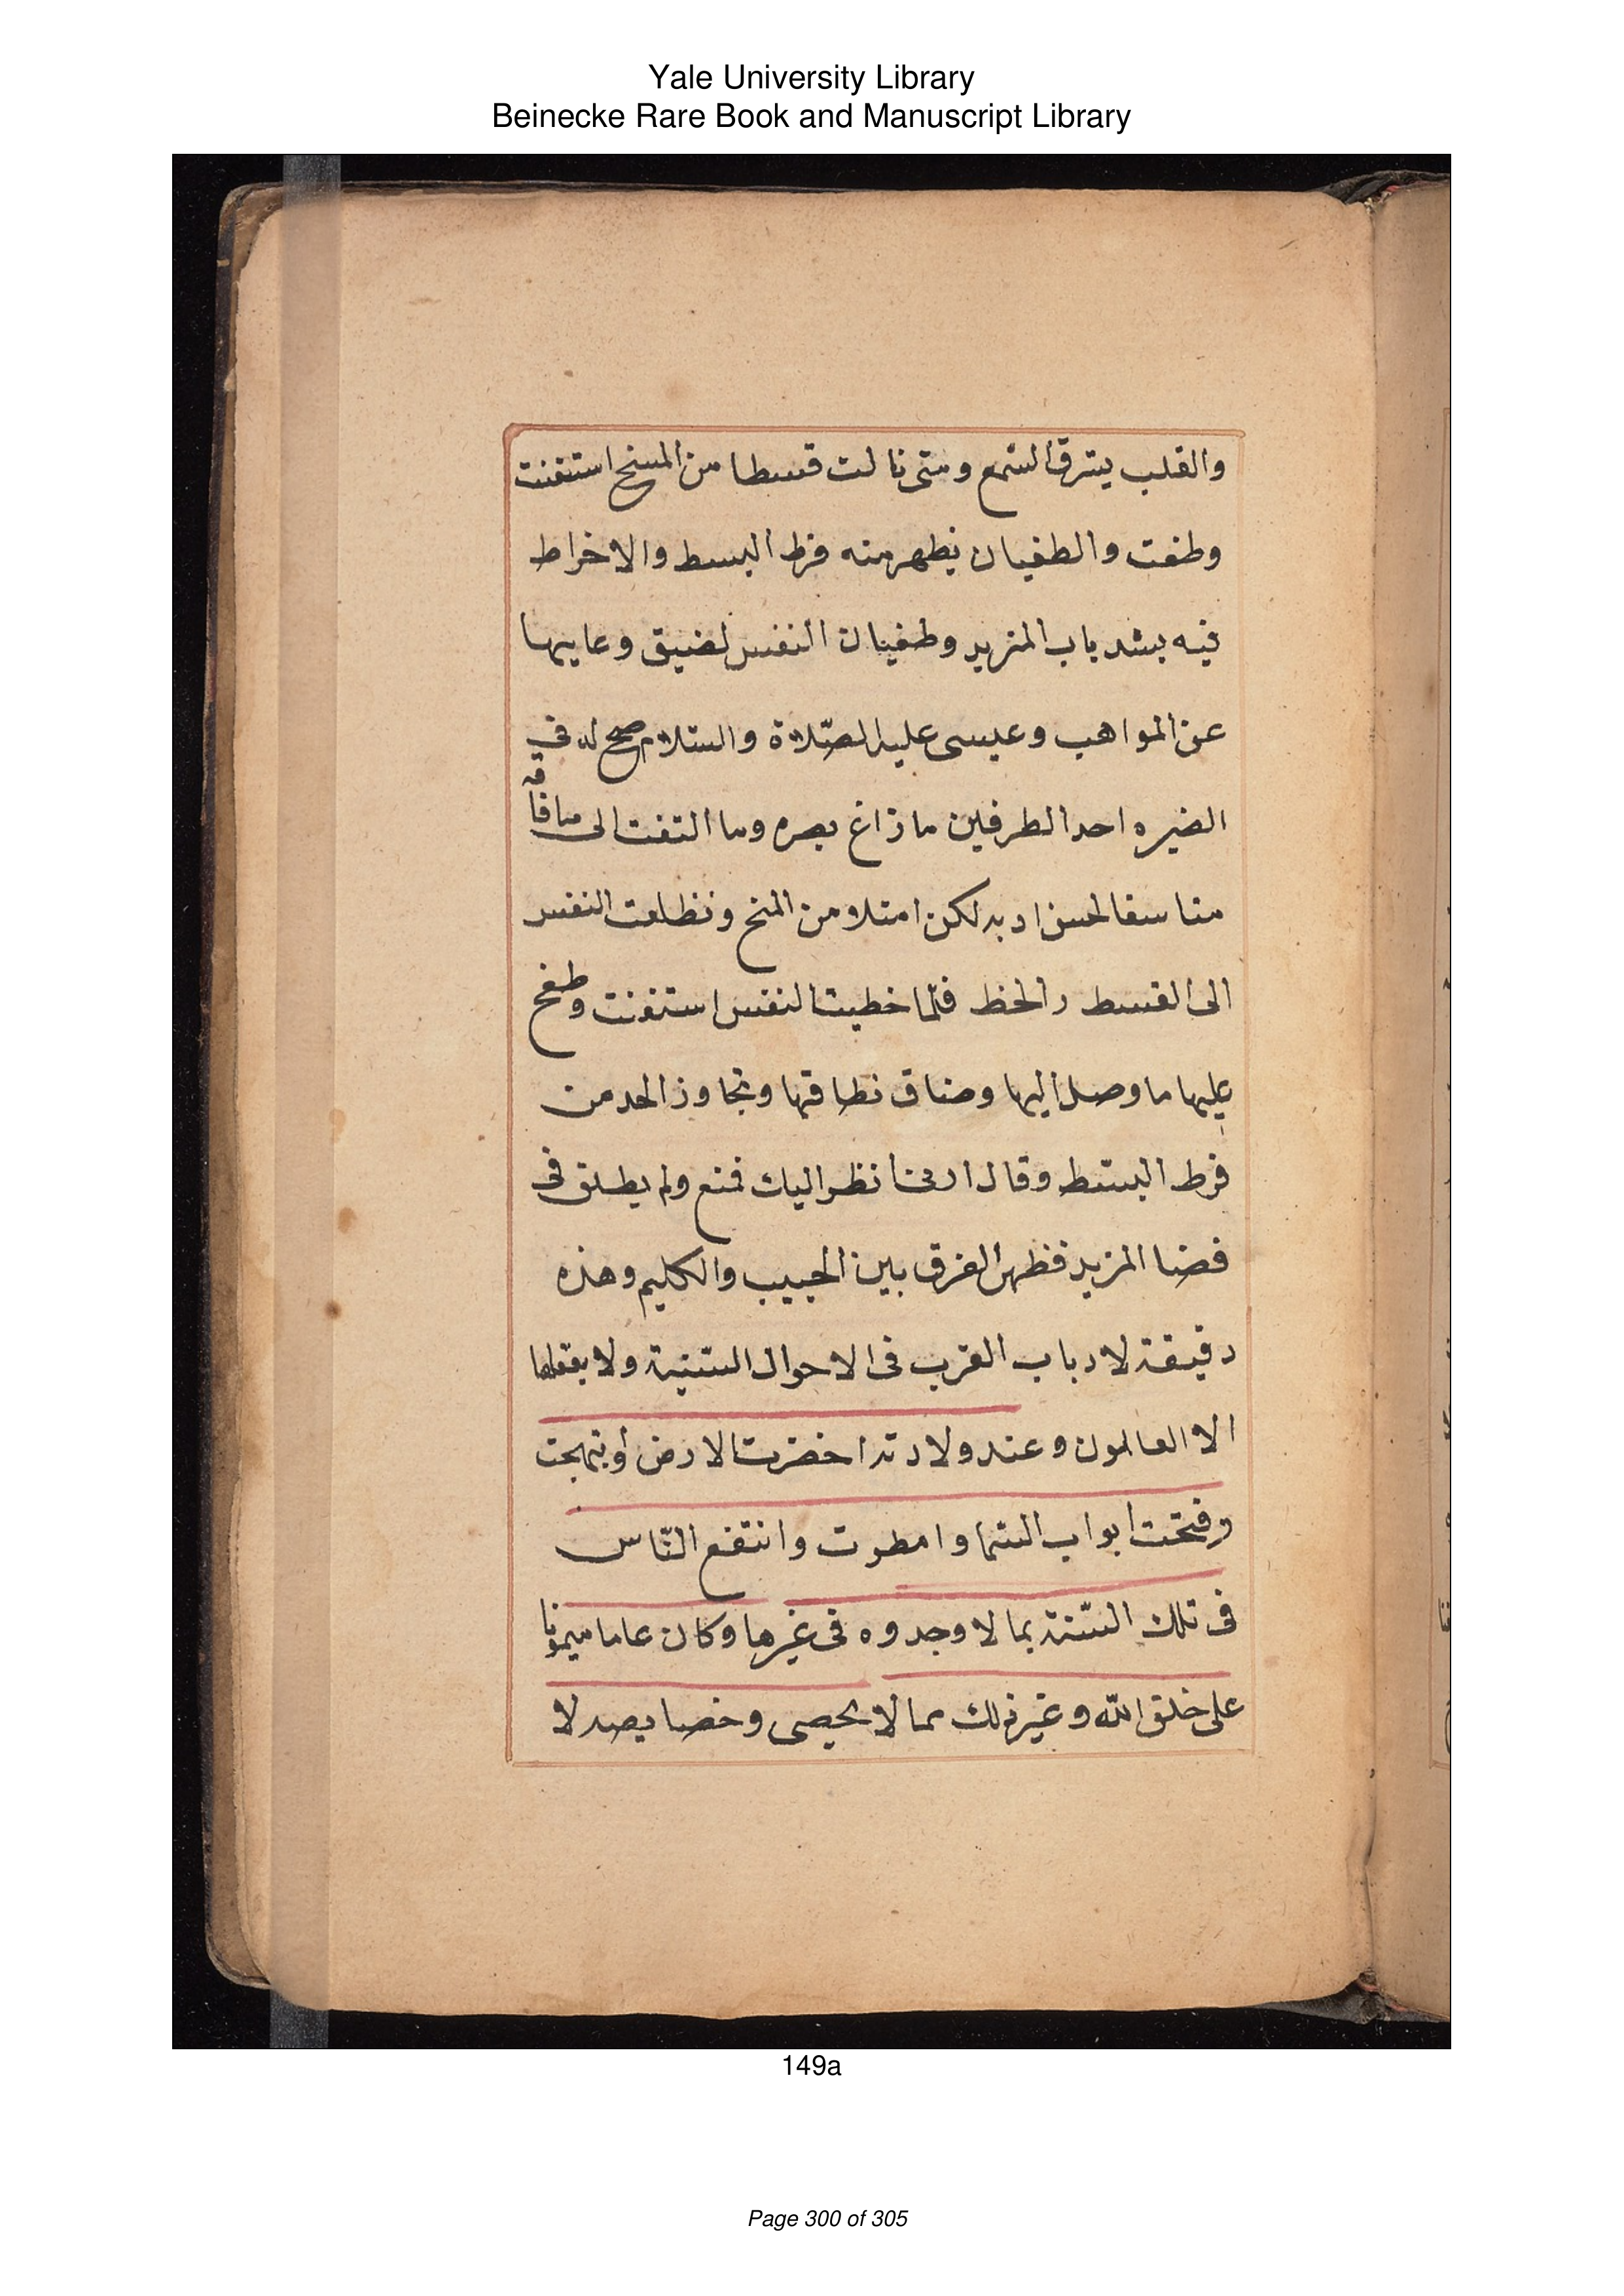 Yale University Library
Beinecke Rare Book and Manuscript Library
والقلب يسترق السمع ومتى نالت قسطا من المنح استغنت
وطغت والطغيان يظهر منه فرط البسط والافراط
فيه يسد باب المزيد وطغيان النفس لضيق وعايها
عن المواهب وعيسى عليه الصّلاة والسّلام صح له في
الضيره احد الطرفين ما زاغ بصره وما التفت الى ما فاته
متاسفا لحسن ادبه لكن امتلا من المنح وتطلعت النفس
الى القسط والحظ فلمّا خطيت النفس استغنت وطفح
عليها ما وصل اليها وضاق نطاقها وتجاوز الحد من
فرط البسّط وقال ارنى انظر اليك فمنع ولم يطلق فى
فضا المزيد فظهر الفرق بين الحبيب والكليم وهذه
دقيقة لارباب القرب فى الاحوال السّنيّة ولا يعقلها
الا العالمون وعند ولادته اخضرت الارض وابتهجت
وفتحت ابواب السّما وامطرت وانتفع النّاس
فى تلك السّنة بما لا وجدوه فى غيرها وكان عاما ميمونا
على خلق الله وغير ذلك مما لا يحصى وخصايصه لا
149a
Page 300 of 305